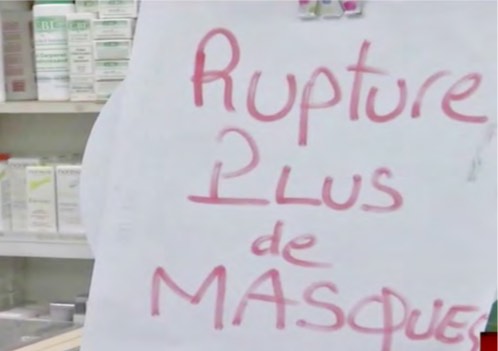 Rupture
PLUS
de
MASQUES